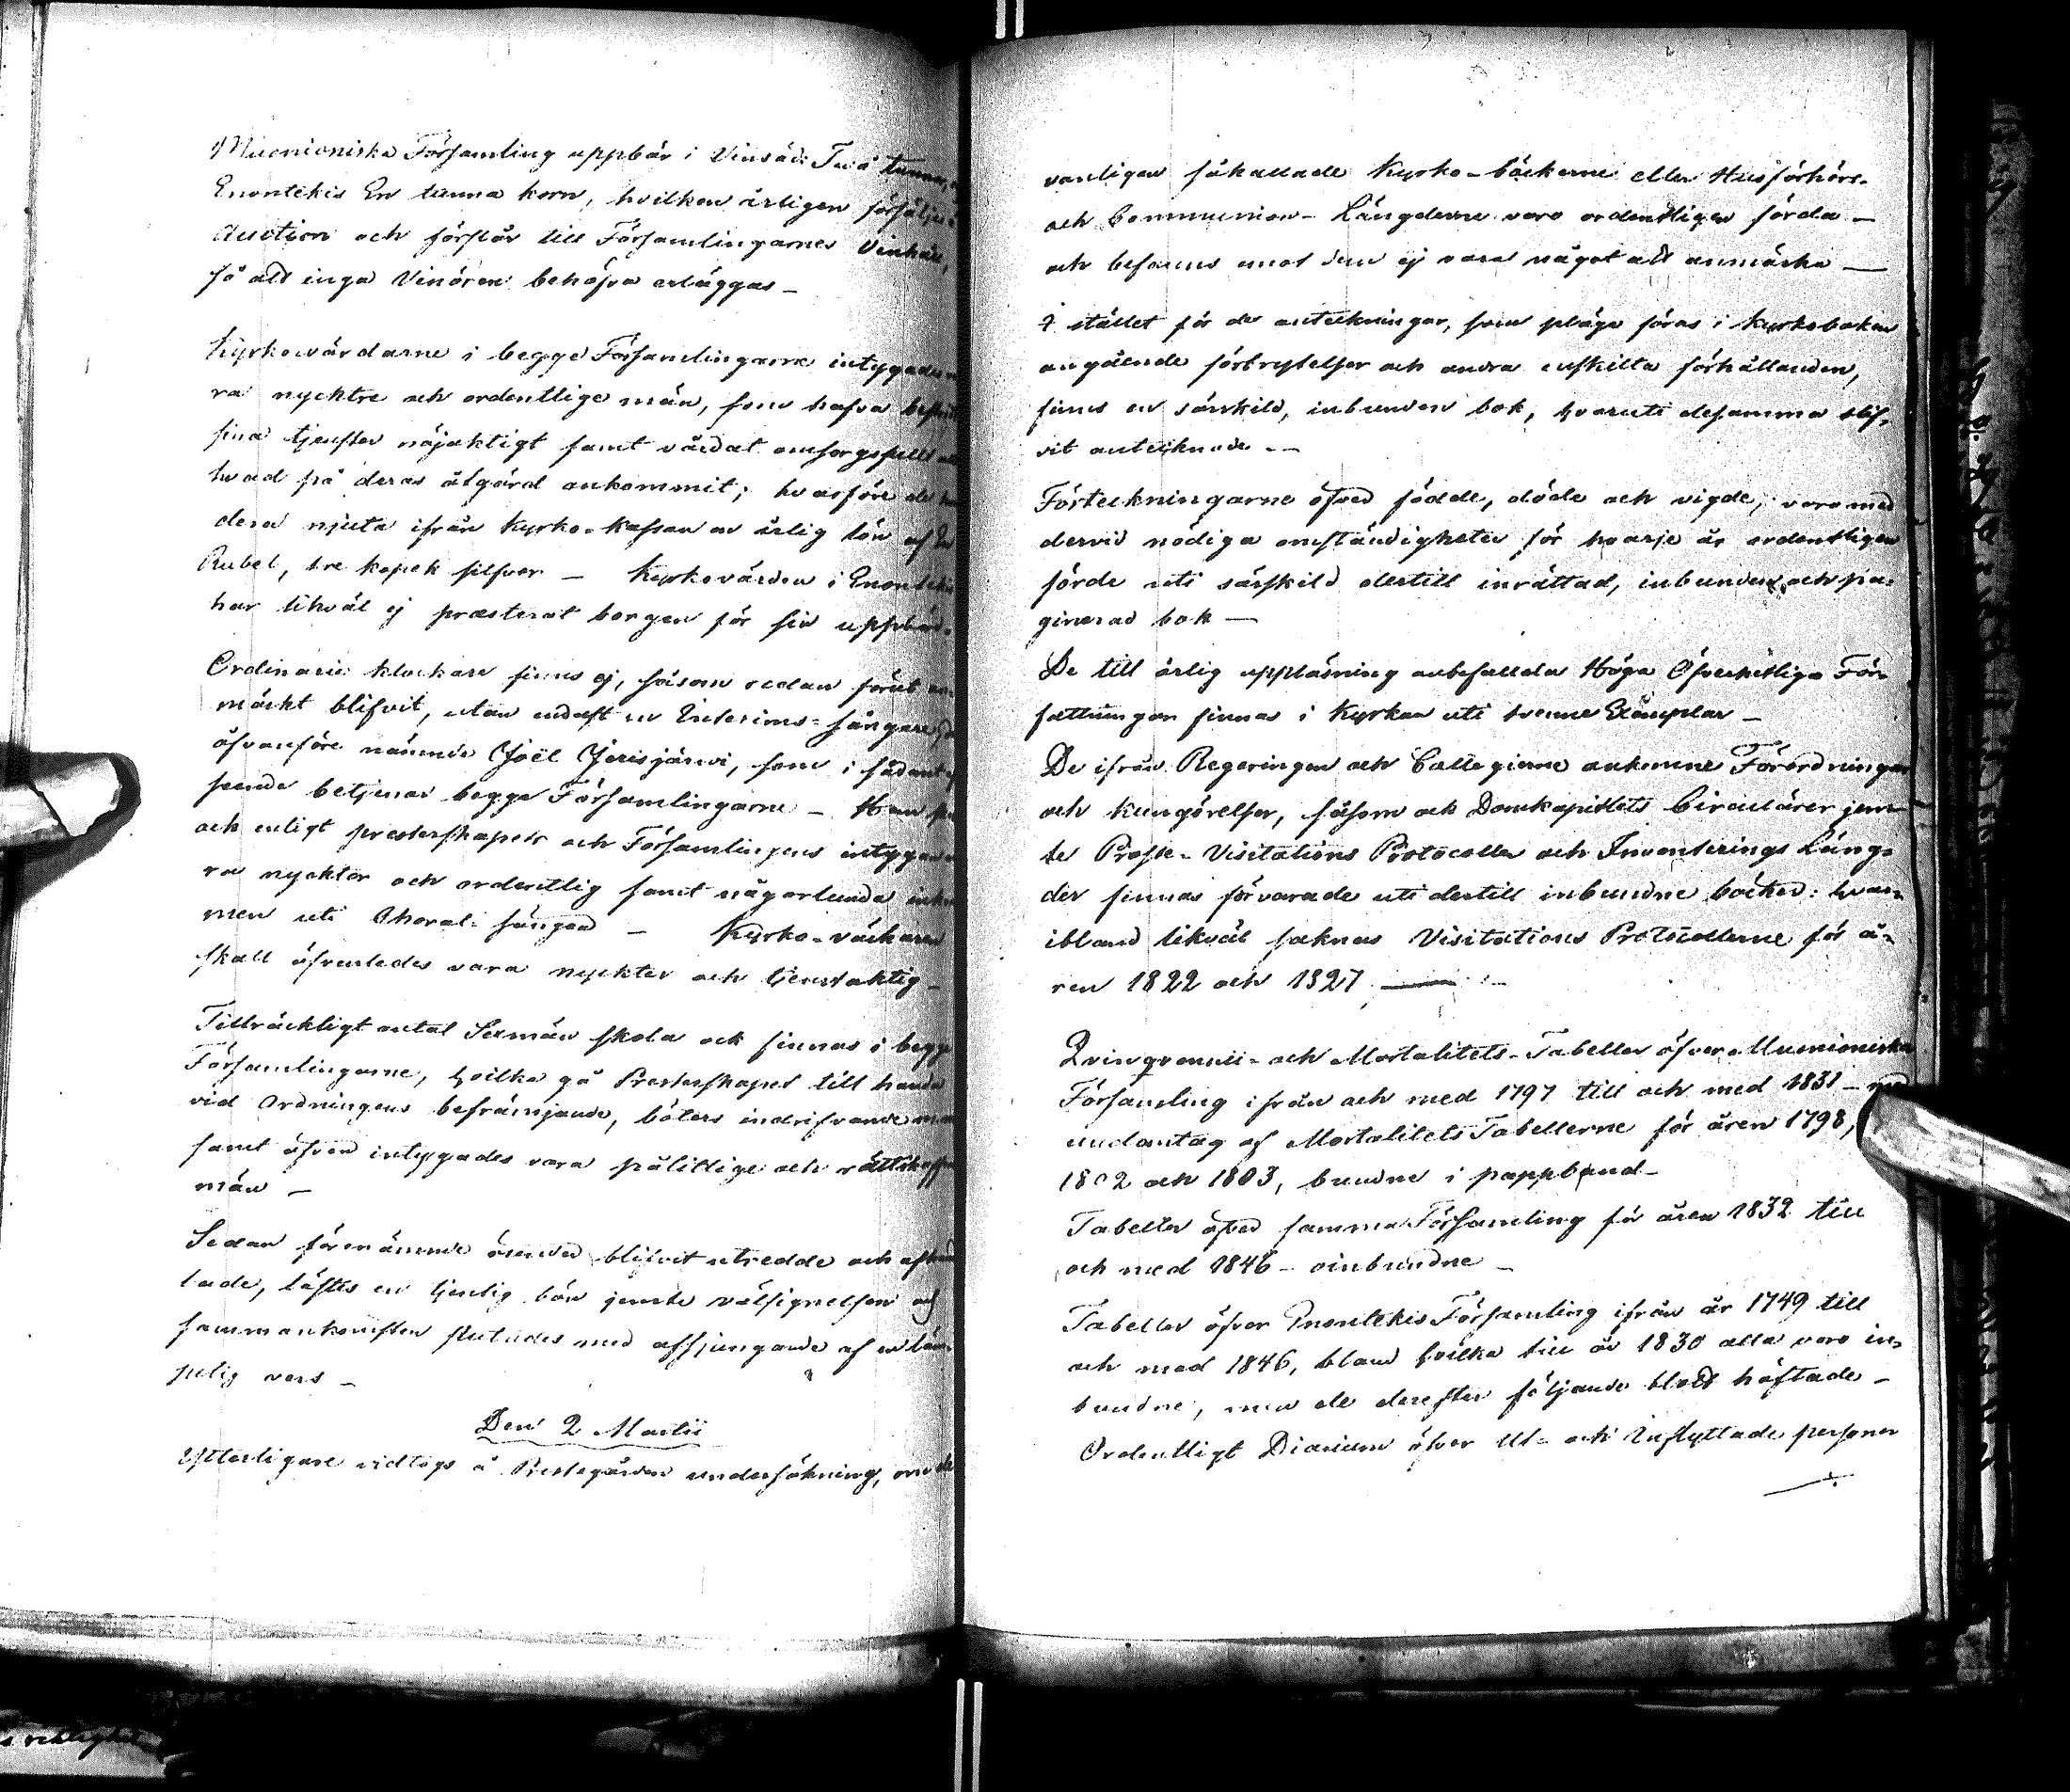 Muonioniska Församling uppbär i Vinsäd Två tunnor,
Enontekis En tunna korn, hvilken årligen försäljes
Auction och förslår till Församlingarnes Vinhåll,
så att inga Vinören behöfva erläggas –
Kyrkovärdarne i begge Församlingarne intygades
ra nycktre och ordentlige män, som hafva bestridt
sina tjenster nöjaktigt samt vårdat omsorgsfullt
hvad på deras åtgärd ankommit; hvarföre de
dera njuta ifrån Kyrko-Kassan en årlig lön af En
Rubel, tre kopek silfver – Kyrkovärden i Enontekis
har likväl ej præsterat borgen för sin uppbörd.
Ordinarie klockare finns ej, såsom redan förut an
märkt blifvit, utan endast en Interims-sångare,
ofvanföre nämnde Joël Jerisjärvi, som i sådant
seende betjenar begge Församlingarne – Han
och enligt presterskapets och Församlingens intygande
ra nykter och ordentlig samt någorlunda
men uti Choral-sången – Kyrko-väcktaren
skall äfvenledes vara nyckter och tjenstaktig –
Tillräckligt antal Sexmän skola ock finnas i begge
Församlingarne, hvilka gå Presterskapet till handa
vid Ordningens befrämjande, böters indrifvande
samt äfven intygades vara pålitlige och rättskaffens
män –
Sedan förenämnde ärender blifvit utredde och afhand
lade, lästes en tjenlig bön jemte välsignelsen och
sammankomsten slutades med afsjungande af en läm
pelig vers –
Den 2 Martii
Ytterligare vidtogs å Prestegården undersökning, om de
vanligen såkallade Kyrko-böckerne eller Husförhörs-
och Communion-Längderne voro ordentligen förda –
och befanns emot dem ej vara något att anmärka –
I stället för de anteckningar, som pläga föras i Kyrkoboken
angående förbrytelser och andra enskilta förhållanden,
finns en särskild, inbunden bok, hvaruti desamma blif-
vit antecknade –
Förteckningarne öfver födde, döde och vigde, voro med
dervid nödiga omständigheter för hvarje år ordentligen
förde uti särskild dertill inrättad, inbunden och pa-
ginerad bok –
De till årlig uppläsning anbefallda Höga Öfverhetliga För-
fattningar finnas i Kyrkan uti tvenne Exemplar –
De ifrån Regeringen och Collegierne ankomne Förordningar
och Kungörelser, såsom ock Domkapitlets Circulärer jem-
te Proste-Visitations Protocoller och Inventerings Läng-
der finnas förvarade uti dertill inbundne böcker: hvar-
ibland likväl saknas Visitations Protocollerne för å-
ren 1822 och 1827 –
Qvinqvennii- och Mortalitets-Tabeller öfver Muonioniska
Församling ifrån och med 1797 till och med 1831 – med
undantag af Mortalitets Tabellerne för åren 1798,
1802 och 1803, bundne i pappband –
Tabeller öfver samma Församling för åren 1832 till
och med 1846 – oinbundne –
Tabeller öfver Enontekis Församling ifrån år 1749 till
och med 1846, bland hvilka till år 1830 alla voro in-
bundne, men de derefter följande blott häftade –
Ordentligt Diarium öfver Ut- och Inflyttade personer